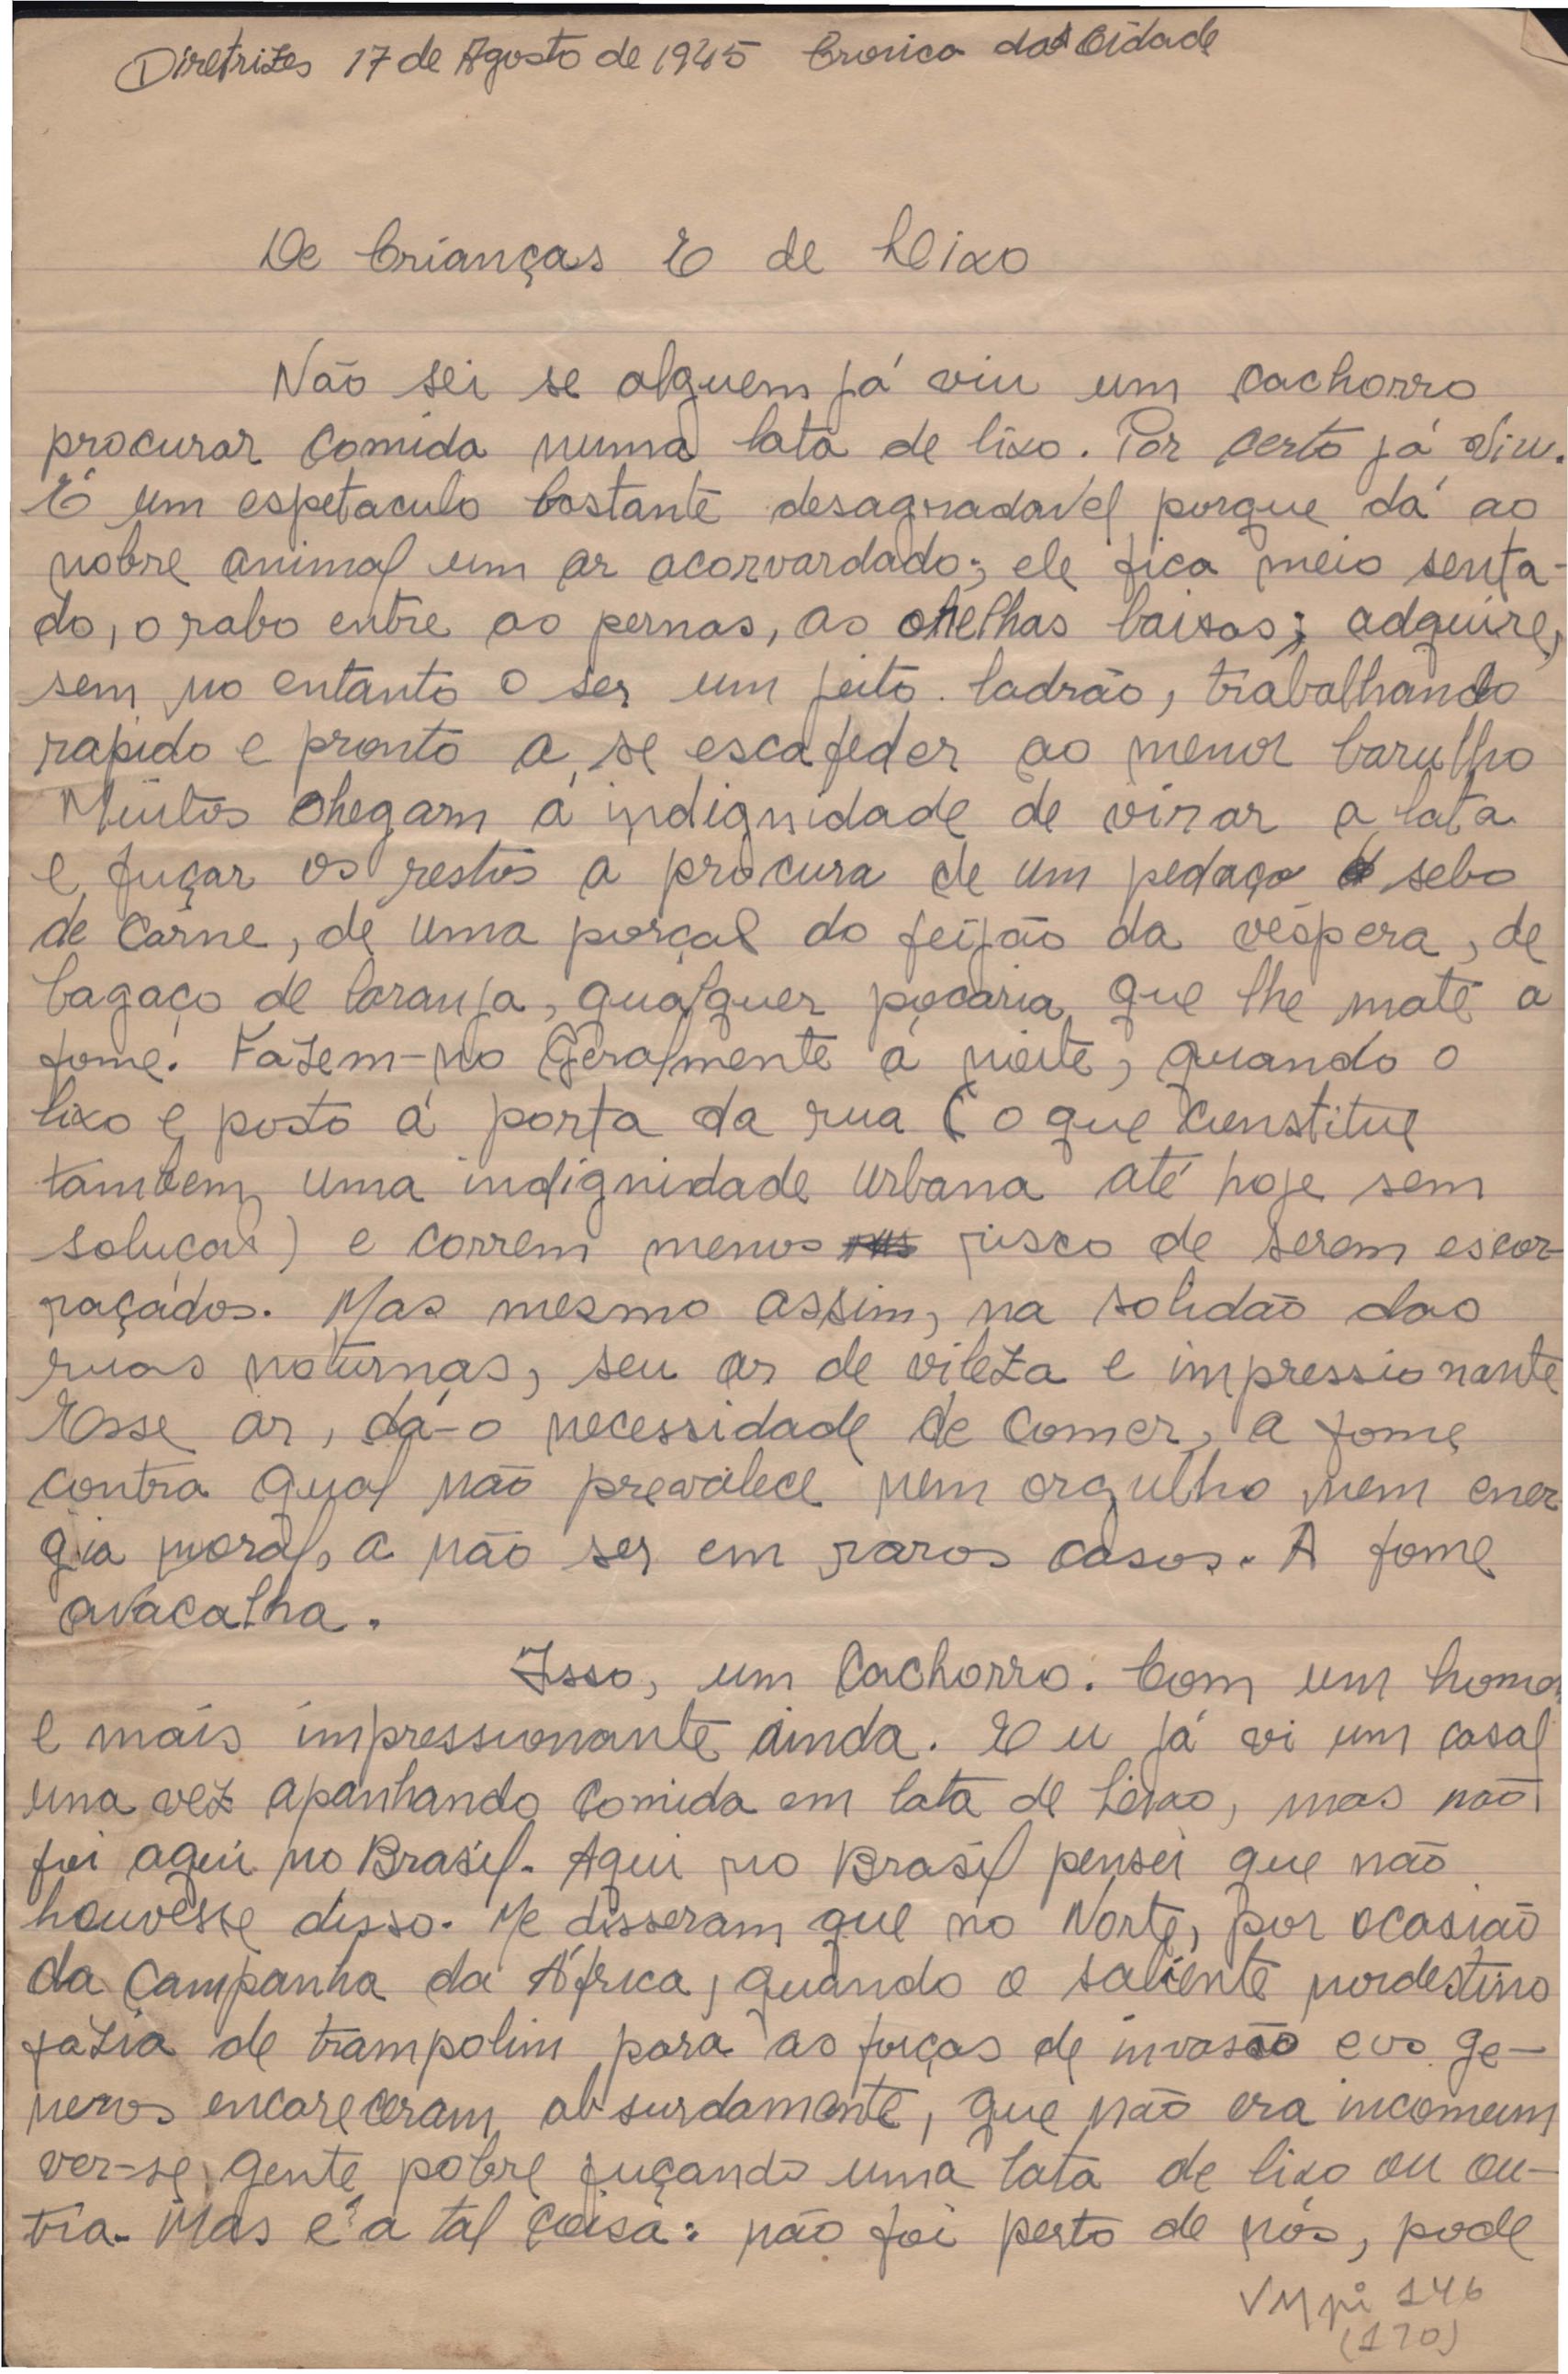 Diretrizes 17 de Agosto de 1945 Cronica das Cidade
De Crianças E de Lixo
Não sei se alguem já viu um cachorro
procurar comida numa lata de lixo. Por certo já viu.
É um espetaculo bastante desagradavel porque dá ao
nobre animal um ar acorvardado; ele fica meio senta-
do, o rabo entre as pernas, as orelhas baixas; adquire,
sem no entanto o ser um jeito ladrão, trabalhando
rapido e pronto a se escafeder ao menor barulho
Muitos chegam á indignidade de virar a lata
e fuçar os restos a procura de um pedaço sebo
de carne, de uma porçal do feijão da véspera, de
bagaço de laranja, qualquer pocaria que lhe mate a
fome. Fazem-no Geralmente á noite, quando o
lixo e posto á porta da rua ( o que constitue
tambem uma indignidade urbana até hoje sem
soluçau) e correm menos risco de serem escor-
raçádos. Mas mesmo assim, na solidão das
ruas noturnas, seu ar de vileza e impressionante
Esse ar, dá-o necessidade de comer, a fome
contra qual não prevalece nem orgulho nem ener
gia moral, a não ser em raros casos. A fome
avacalha.
Isso, um cachorro. Com um home
e mais impressionante ainda. Eu já vi um casal
uma vez apanhando comida em lata de Leixo, mas não
foi aqui no Brasil. Aqui no Brasil pensei que não
houvesse disso. Me disseram que no Norte, por ocasião
da campanha da África, quando o saliente nordestino
fazia de trampolim para as forças de invasão e os ge-
neros encareceram absurdamente, que não era incomum
ver-se gente pobre fuçando uma lata de lixo ou ou-
tra. Mas e' a tal coisa: não foi perto de nós, pode
VMpi 146
(170)